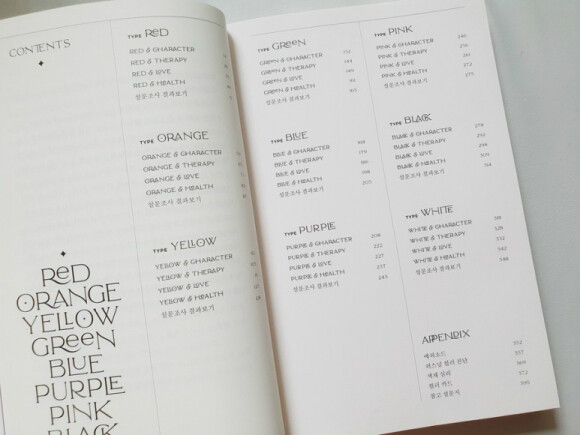 CONTENTS
RED
ORANGE
YELLOW
GREEN
BLUE
PURPLE
PINK
BLACK
TYPE RED
RED & CHARACTER
RED & THERAPY
RED & LOVE
RED & HEALTH
설문조사 결과보기
TYPE ORANGE
ORANGE & CHARACTER
ORANGE & THERAPY
ORANGE & LOVE
ORANGE & HEALTH
설문조사 결과보기
TYPE YELLOW
YELLOW & CHARACTER
YELLOW & THERAPY
YELLOW & LOVE
YELLOW & HEALTH
설문조사 결과보기
TYPE GREEN
GREEN & CHARACTER
GREEN & THERAPY
GREEN & LOVE
GREEN & HEALTH
설문조사 결과보기
TYPE BLUE
BLUE & CHARACTER
BLUE & THERAPY
BLUE & LOVE
BLUE & HEALTH
설문조사 결과보기
TYPE PURPLE
PURPLE & CHARACTER 208
PURPLE & THERAPY 222
PURPLE & LOVE 227
PURPLE & HEALTH 237
설문조사 결과보기 243
TYPE PINK
PINK & CHARACTER 246
PINK & THERAPY 256
PINK & LOVE 261
PINK & HEALTH 272
설문조사 결과보기 275
TYPE BLACK
BLACK & CHARACTER 278
BLACK & THERAPY 292
BLACK & LOVE 299
BLACK & HEALTH 309
설문조사 결과보기 314
TYPE WHITE
WHITE & CHARACTER
WHITE & THERAPY
WHITE & LOVE
WHITE & HEALTH 342
설문조사 결과보기 348
APPENDIX
에피소드 352
퍼스널 컬러 진단 357
색채 심리
컬러 카드 372
참고 설문지